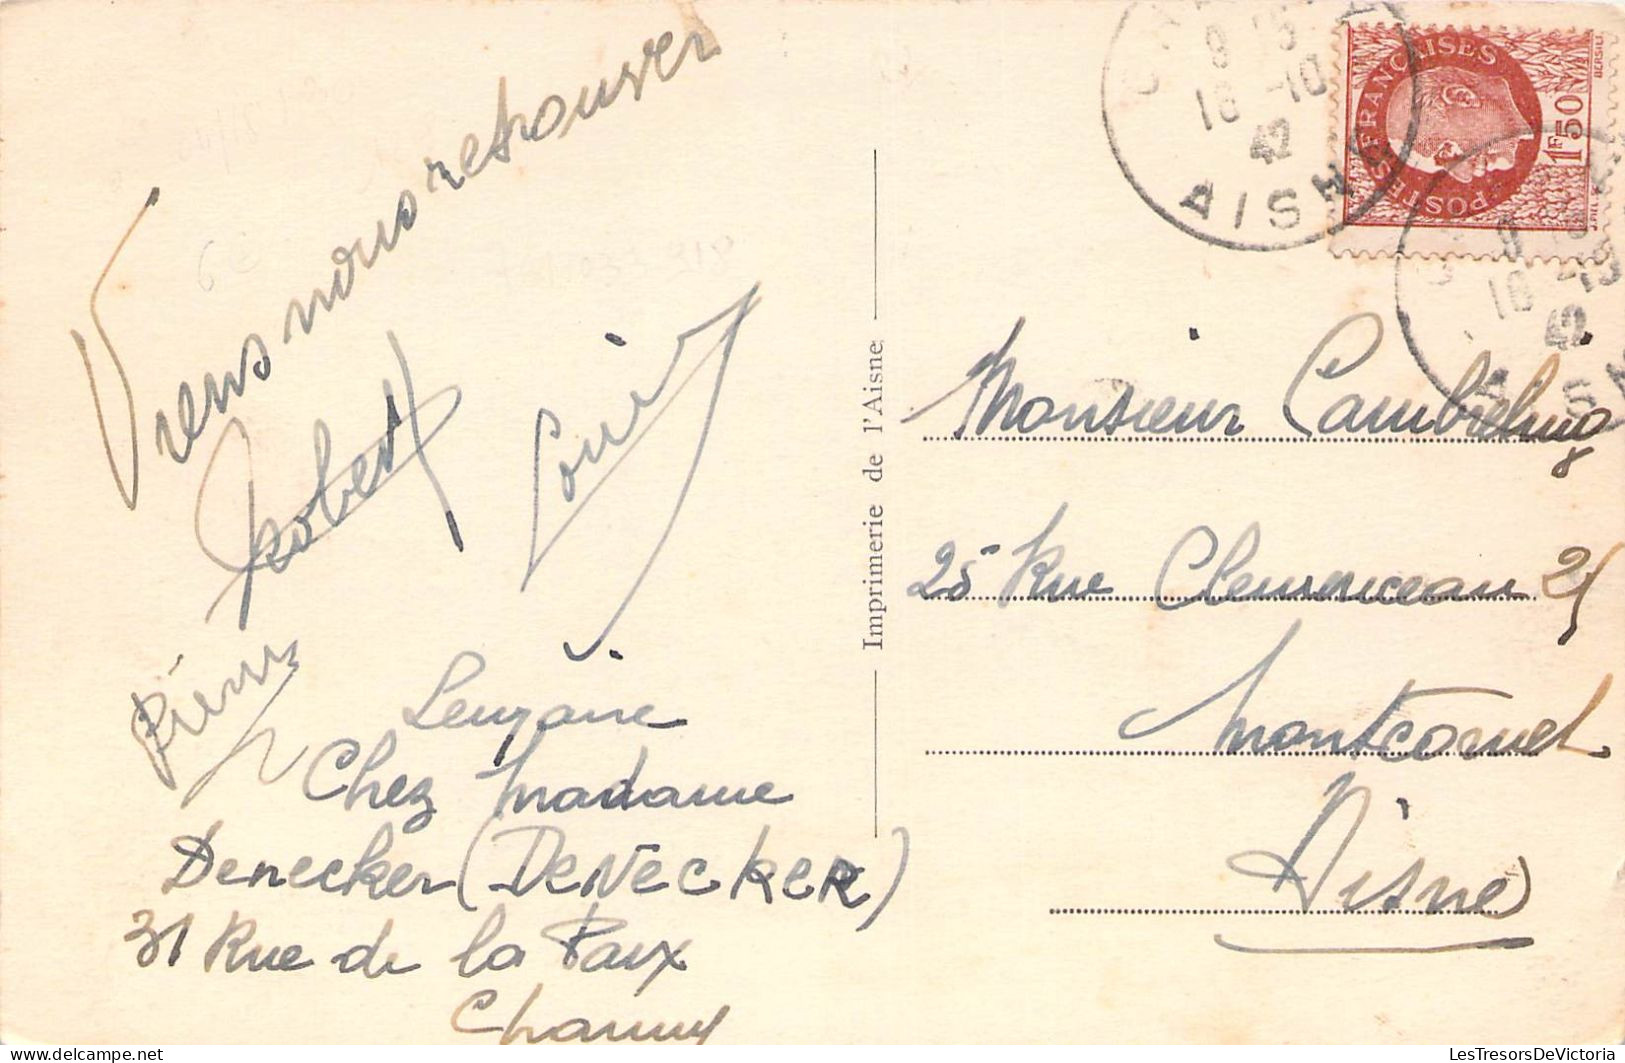 Viens nous retrouver
Robert
Louis
Pierre
Leuzaire
Chez Madame
Denecker (DENECKER)
31 Rue de la Paix
Chauny
Imprimerie de l'Aisne
8 15
18 -10
42
AISNE
POSTES FRANÇAISES
1F50
BERSIER
Monsieur
25 Rue Clemenceau 25
Montcornet
Aisne
18 -10
42
LesTresorsDeVictoria
delcampe.net
LesTresorsDeVictoria